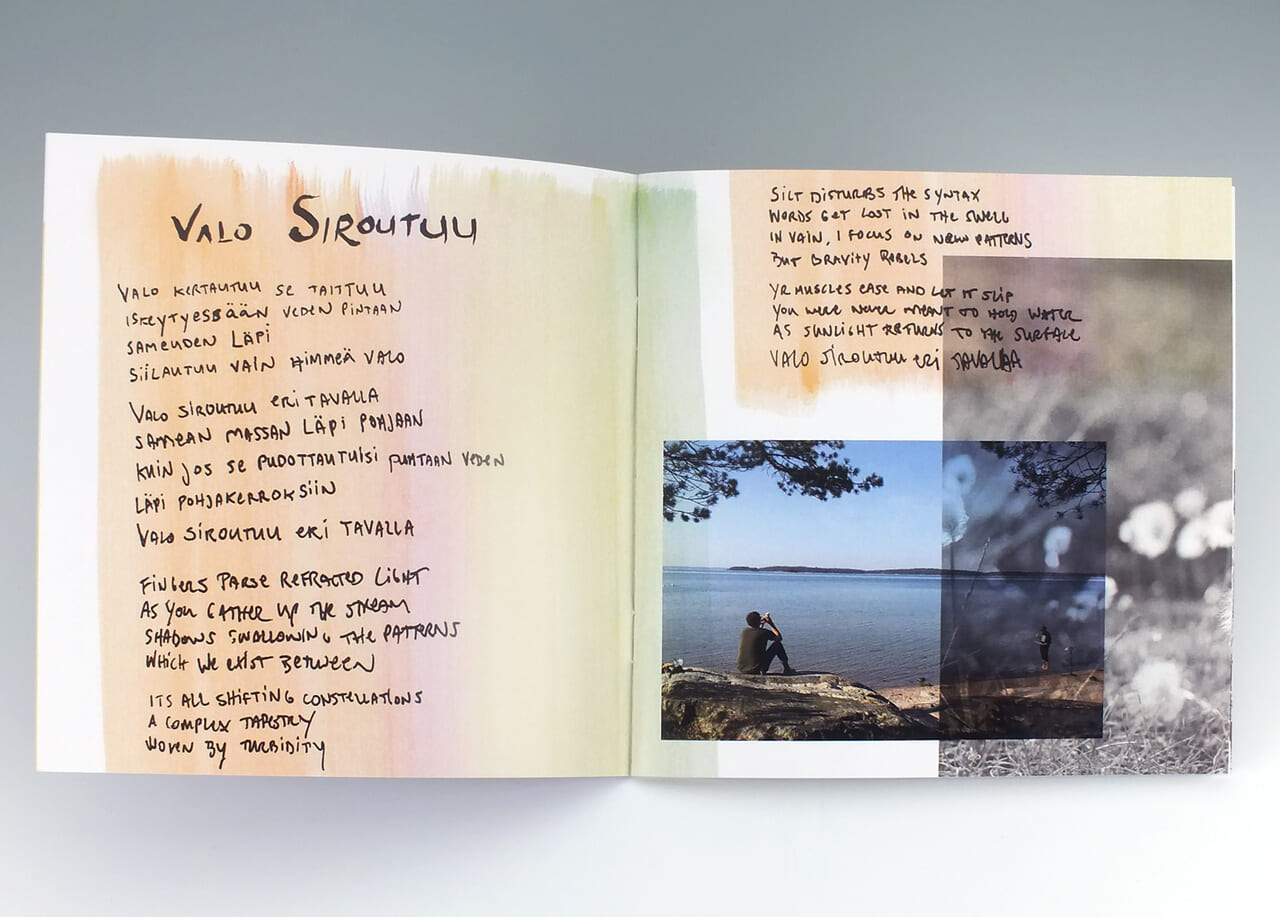 VALO SIROUTUU
VALO KERTAUTUU SE TAITTUU
ISKEYTYESSÄÄN VEDEN PINTAAN
SAMEUDEN LÄPI
SIILAUTUU VAIN HIMMEÄ VALO
VALO SIROUTUU ERI TAVALLA
SAMEAN MASSAN LÄPI POHJAAN
KUIN JOS SE PUDOTTAUTUISI PUHTAAN VEDEN
LÄPI POHJAKERROKSIIN
VALO SIROUTUU ERI TAVALLA
FINGERS PARSE REFRACTED LIGHT
AS YOU GATHER UP THE STREAM
SHADOWS SWALLOWING THE PATTERNS
WHICH WE EXIST BETWEEN
ITS ALL SHIFTING CONSTELLATIONS
A COMPLEX TAPESTRY
WOVEN BY TURBIDITY
SILT DISTURBS THE SYNTAX
WORDS GET LOST IN THE SWELL
IN VAIN, I FOCUS ON NEW PATTERNS
BUT GRAVITY REBELS
YR MUSCLES EASE AND LET IT SLIP
YOU WERE NEVER MEANT TO HOLD WATER
AS SUNLIGHT RETURNS TO THE SURFACE
VALO SIROUTUU ERI TAVALLA